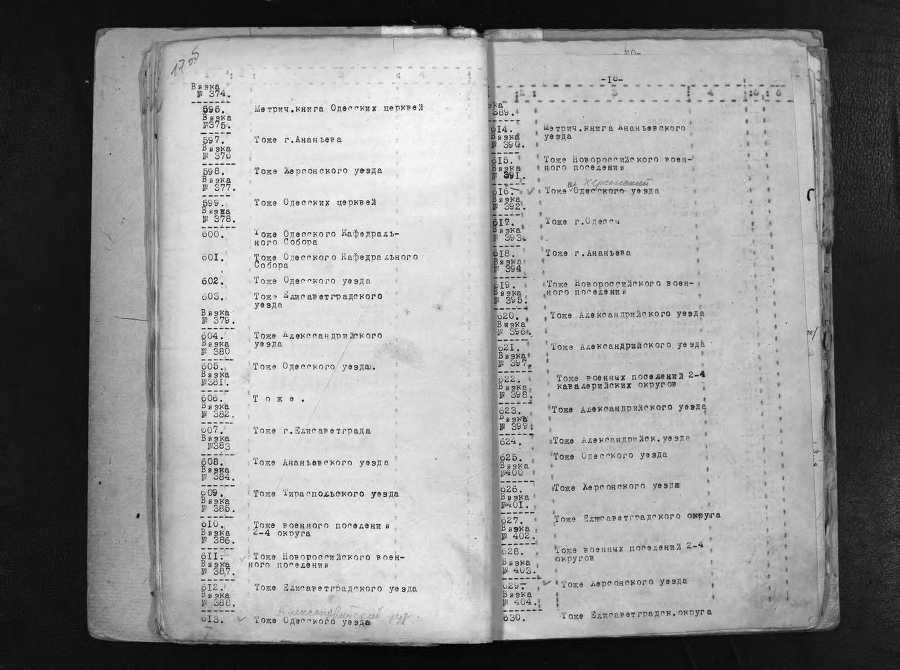 Вязка
№ 374.
596.
Вязка
№375.
Метрич.книга Одесских церквей
597.
Вязка
№ 376
Тоже г.Ананьева
598.
Вязка
№ 377.
Тоже Херсонского уезда
599.
Вязка
№ 378.
Тоже Одесских церквей
600.
Тоже Одесского Кафедраль-
ного Собора
601.
Тоже Одесского Кафедрального
Собора
602.
Тоже Одесского уезда
603.
Вязка
№ 379.
Тоже Елисаветградского
уезда
604.
Вязка
№ 380
Тоже Александрийского
уезда
605.
Вязка
№381.
Тоже Одесского уезда.
606.
Вязка
№ 382.
Т о ж е .
607.
Вязка
№383
Тоже г.Елисаветграда
608.
Вязка
№ 384.
Тоже Ананьевского уезда
609.
Вязка
№ 385.
Тоже Тираспольского уезда
610.
Вязка
№ 386.
Тоже военного поселения
2-4 округа
611.
Вязка
№ 387.
Тоже Новороссийского воен-
ного поселения
612.
Вязка
№ 388.
Тоже Елисаветградского уезда
613.
Тоже Одесского уезда
-18-
2 3 4 5 6
зка
389.
614.
Вязка
№ 390.
Метрич.книга Ананьевского
уезда
615.
Вязка
№ 391.
Тоже Новороссийского воен-
ного поселения
и Херсонский
616.
Вязка
№ 392.
Тоже Одесского уезда
617.
Вязка
№ 393.
Тоже г.Одессы
618.
Вязка
№ 394
Тоже г.Ананьева
619.
Вязка
№ 395.
Тоже Новороссийского воен-
ного поселения
620.
Вязка
№ 396.
Тоже Александрийского уезда
621.
Вязка
№ 397.
Тоже Александрийского уезда
622.
Вязка
№ 398.
Тоже военных поселений 2-4
кавалерийских округов
623.
Вязка
№ 399.
Тоже Александрийского уезда
624.
Тоже Александрийск.уезда
625.
Вязка
№400
Тоже Одесского уезда
626.
Вязка
№401.
Тоже Херсонского уезда
627.
Вязка
№ 402.
Тоже Елисаветградского округа
628.
Вязка
№ 403.
Тоже военных поселений 2-4
округов
629.
Вязка
№ 404.
Тоже Херсонского уезда
630.
Тоже Елисаветградск.округа